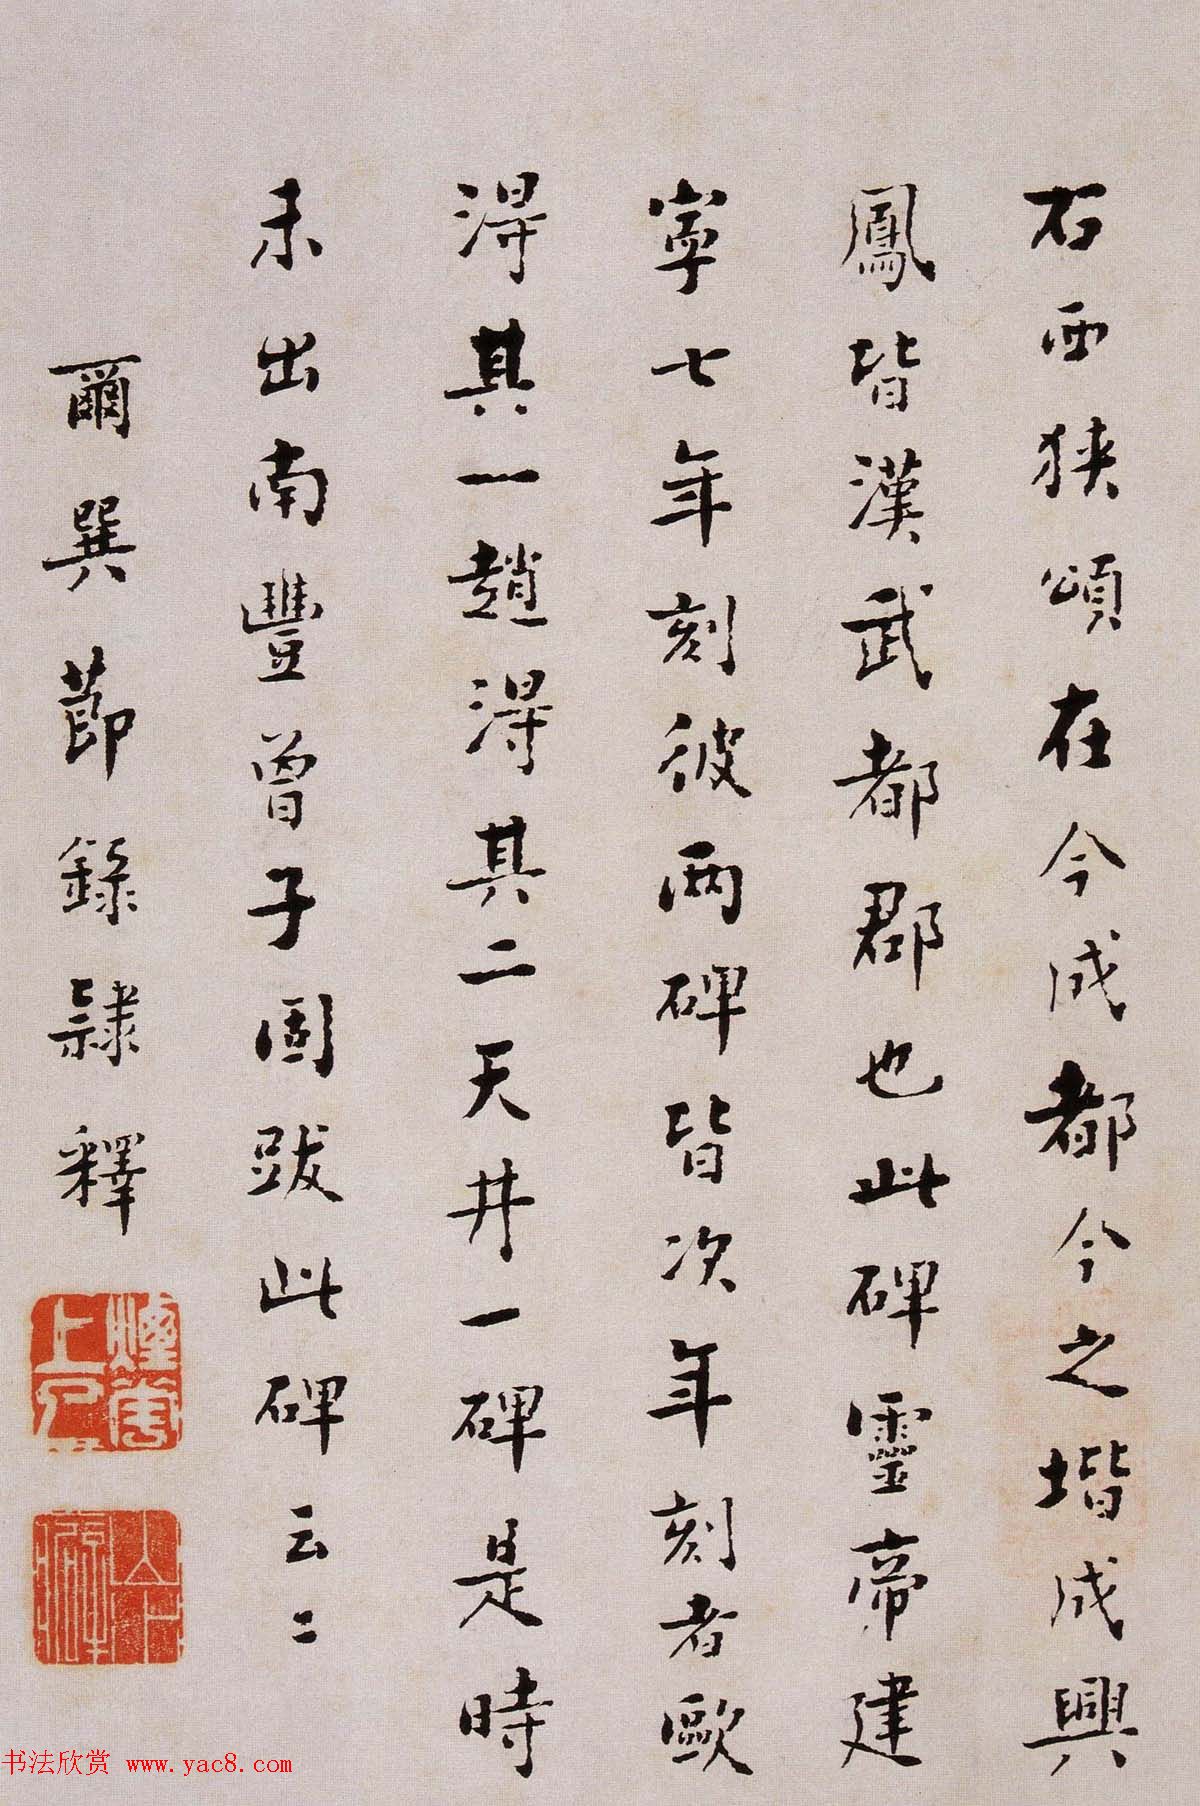 石西狹頌在今成都今之堦成興
鳳皆漢武都郡也此碑靈帝建
寧七年刻彼兩碑皆次年刻者歐
淂其一趙淂其二天井一碑是時
未出南豐曾子固跋此碑云〻
爾巽節錄隷釋
书法欣赏 www.yac8.com